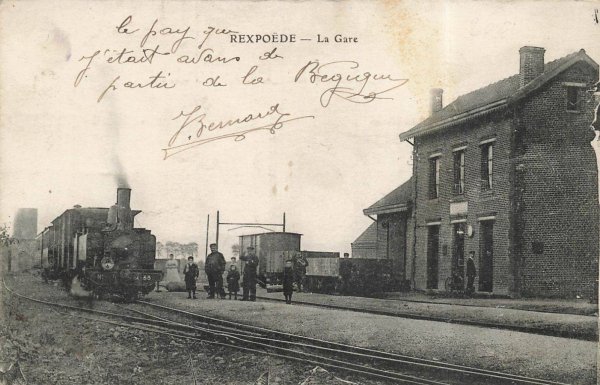 REXPOËDE — La Gare
le pay que
J'etait avans de
partir de la Begique
J Bernard